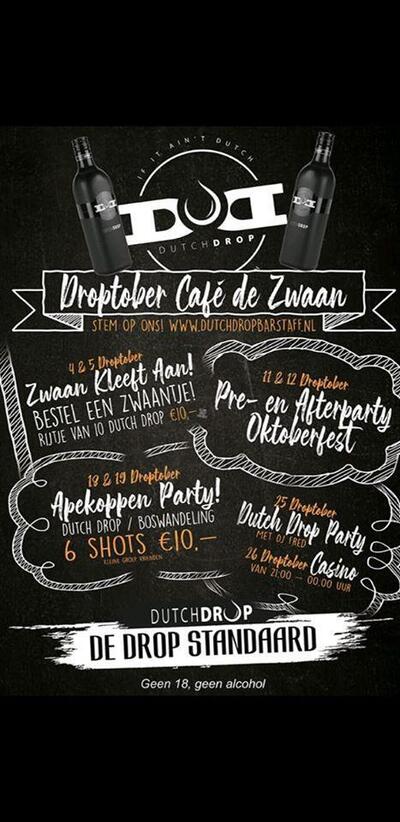 IF IT AIN'T DUTCH
DD
DUTCHDROP
Droptober Café de Zwaan
STEM OP ONS! WWW.DUTCHDROPBARSTAFF.NL
4 & 5 Droptober
Zwaan Kleeft Aan!
BESTEL EEN ZWAANTJE!
RIJTJE VAN 10 DUTCH DROP €10,-
11 & 12 Droptober
Pre- en Afterparty
Oktoberfest
18 & 19 Droptober
Apekoppen Party!
DUTCH DROP / BOSWANDELING
6 SHOTS €10,-
25 Droptober
Dutch Drop Party
MET DJ FRED
26 Droptober Casino
VAN 21:00 - 00.00 UUR
DUTCHDROP
DE DROP STANDAARD
Geen 18, geen alcohol